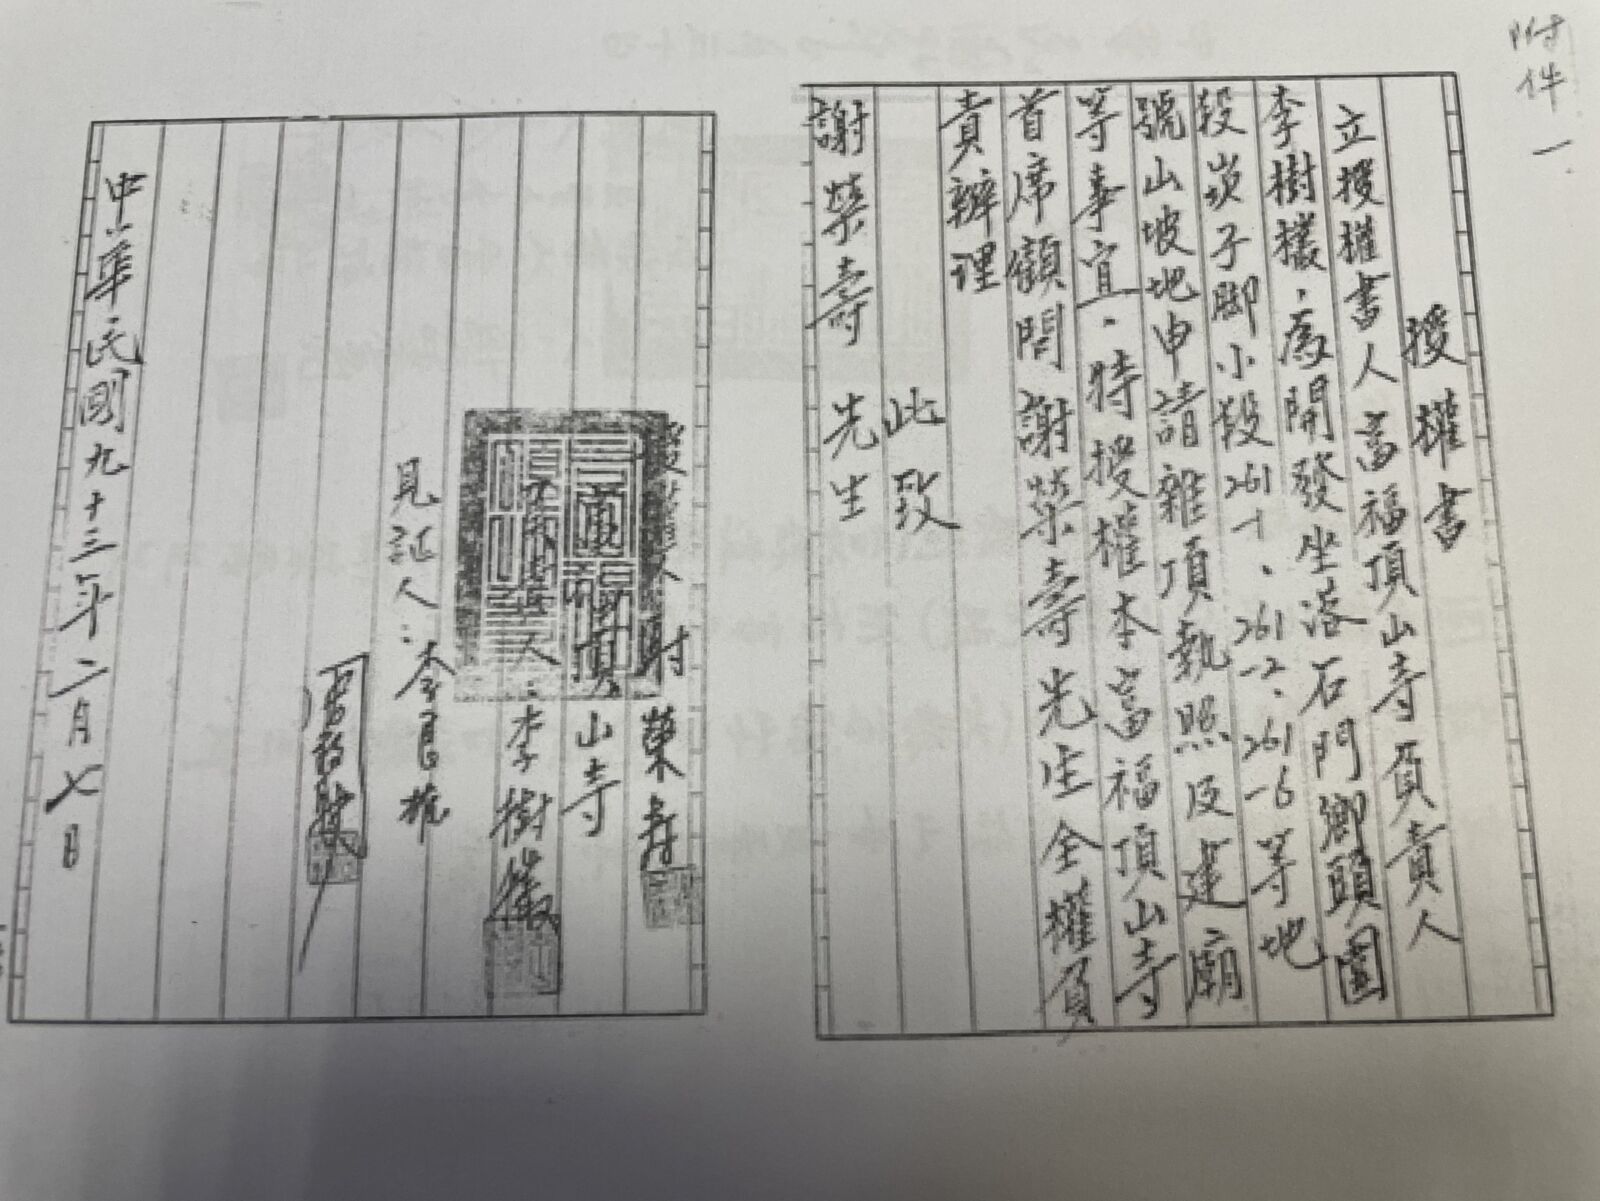 附件一
授權書
立授權書人富福頂山寺負責人
李樹㰖、為開發坐落石門鄉頭圍
段崁子脚小段261-1、261-2、261-6等地
號山坡地申請雜項執照及建廟
等事宜、特授權本富福頂山寺
首席顧問謝榮壽先生全權負
責辦理
此致
謝榮壽 先生
授權人謝榮壽
富福頂山寺
人:李樹
見証人:李
中華民國九十三年二月七日